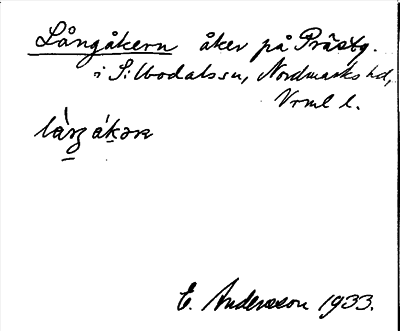 Långåkern åker på Prästg.
i S:lbodalssn, Nordmarks hd,
Vrml l.
E. Andersson 1933.